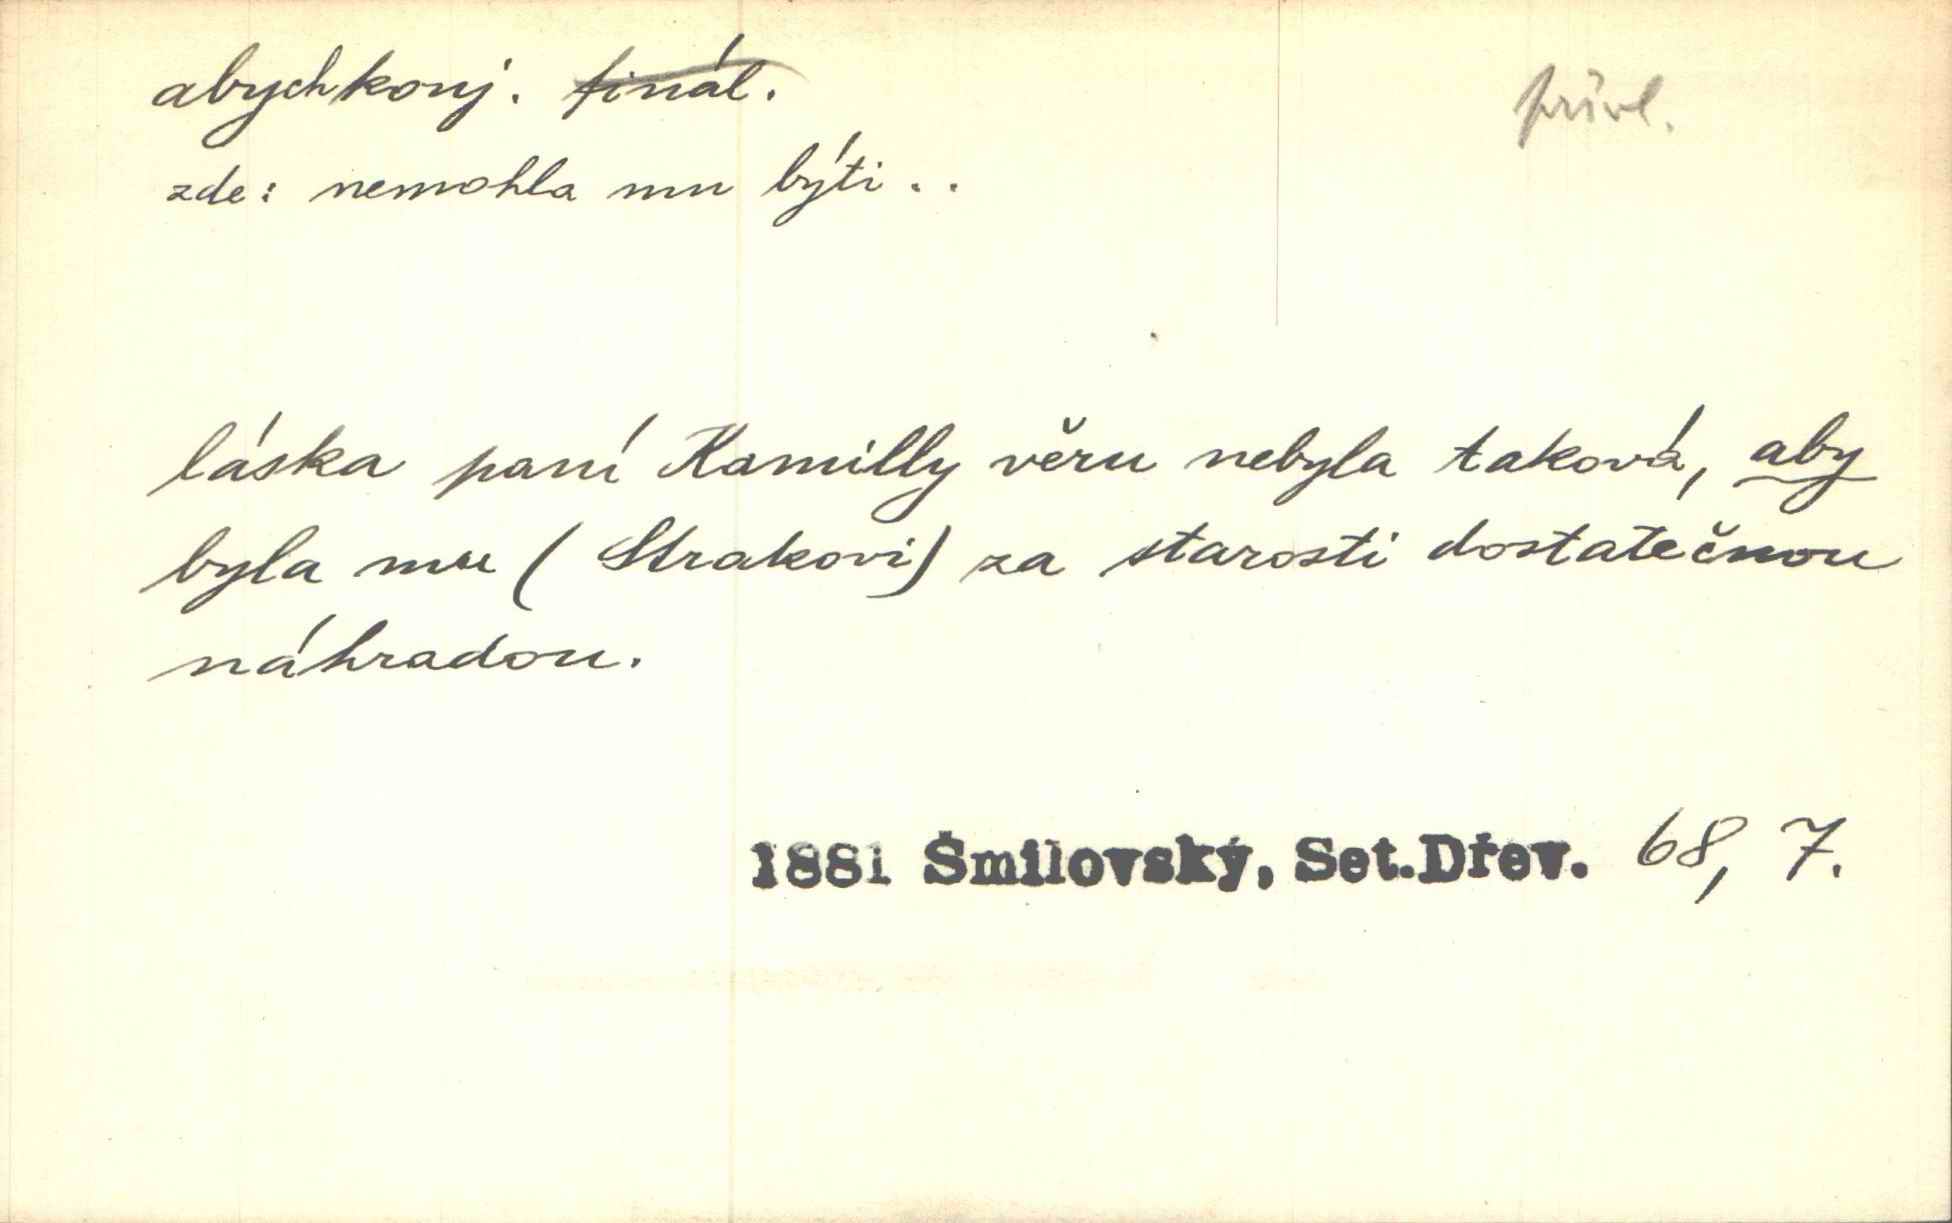 abych konj. finál.
přívl.
zde: nemohla mu býti..
láska paní Kamilly věru nebyla taková, aby
byla mu (Strakovi) za starosti dostatečnou
náhradou.
1881 Šmilovský, Set.Dřev. 68, 7.